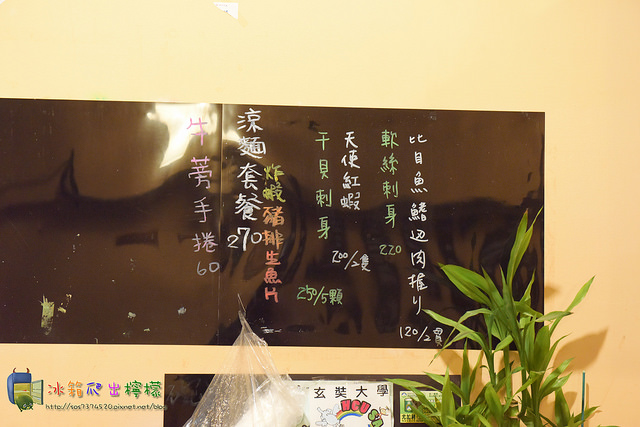 比目魚鰭辺肉握り
120/2貫
軟絲刺身
220
天使紅蝦
200/2隻
干貝刺身
250/5顆
涼麵套餐
270
炸蝦豬排生魚片
牛蒡手捲
60
玄奘大學
冰箱爬出檸檬
http://sos7374520.pixnet.net/blog